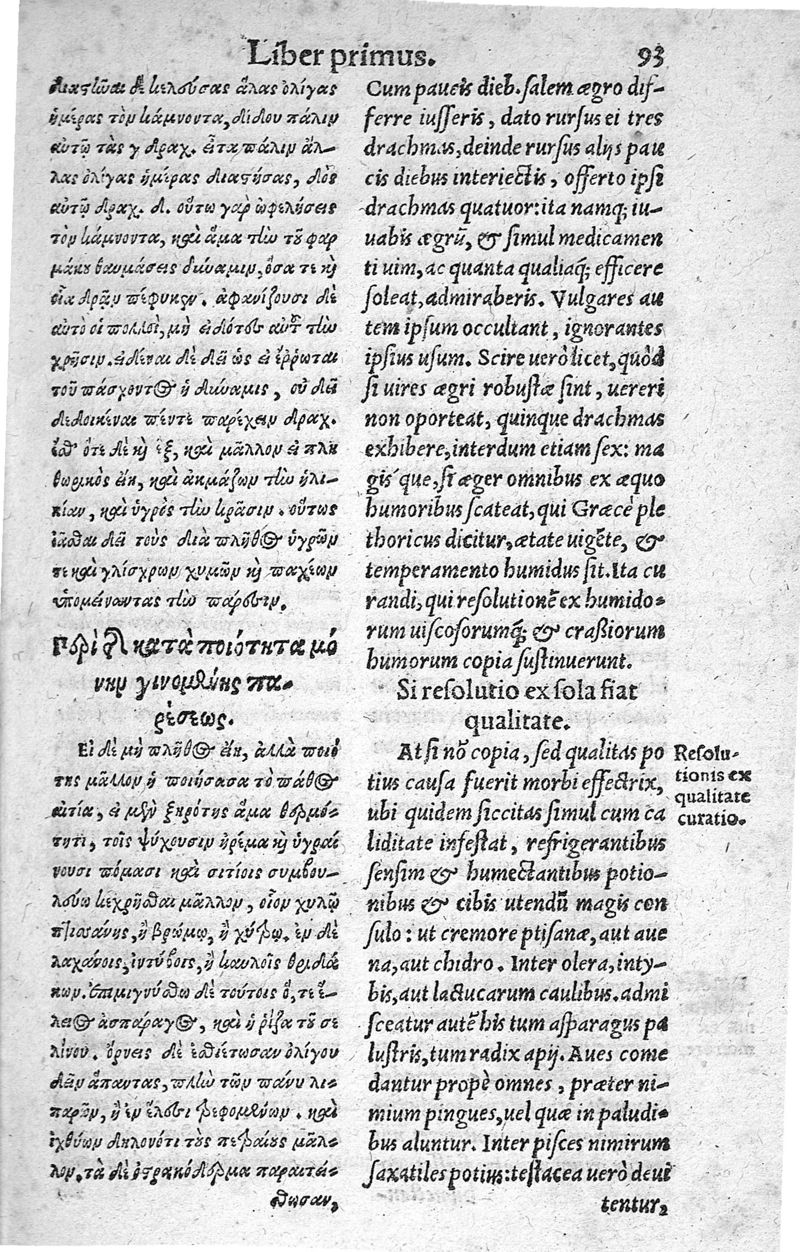 Liber primus. 93
διαστῶαι δὲ κελούσας ἄλας ὀλίγας
ἡμέρας τὸν κάμνοντα, δίδου πάλιν
αὐτῷ τὰς γ δραχ. εἶτα πάλιν ἄλ-
λας ὀλίγας ἡμέρας διαστήσας, δὸς
αὐτῷ δραχ. δ. οὕτω γὰρ ὠφελήσεις
τὸν κάμνοντα, καὶ ἅμα τὴν τοῦ φαρ
μάκου θαυμάσεις δύναμιν, ὅσα τε καὶ
οἷα δρᾶν πέφυκεν. ἀφανίζουσι δὲ
αὐτὸ οἱ πολλοὶ, μὴ εἰδότες αὐτοῦ τὴν
χρῆσιν. εἰδέναι δὲ δεῖ ὡς εἰ ἔρρωται
τοῦ πάσχοντος ἡ δύναμις, οὐ δεῖ
δεδοικέναι πέντε παρέχειν δραχ.
ἔσθ ὅτε δὲ καὶ ἓξ, καὶ μᾶλλον εἰ πλη
θωρικὸς εἴη, καὶ ἀκμάζων τὴν ἡλι-
κίαν, καὶ ὑγρὸς τὴν κρᾶσιν. οὕτως
ἰᾶσθαι δεῖ τοὺς διὰ πλῆθος ὑγρῶν
τε καὶ γλίσχρων χυμῶν καὶ παχέων
ὑπομείναντας τὴν πάρεσιν.
Περὶ τῆς κατὰ ποιότητα μό
νην γινομένης πα-
ρέσεως.
Εἰ δὲ μὴ πλῆθος εἴη, ἀλλὰ ποιό
της μᾶλλον ἡ ποιήσασα τὸ πάθος
αἰτία, εἰ μὲν ξηρότης ἅμα θερμό-
τητι, τοῖς ψύχουσιν ἠρέμα καὶ ὑγραί
νουσι πόμασι καὶ σιτίοις συμβου-
λεύω κεχρῆσθαι μᾶλλον, οἷον χυλῷ
πτισάνης, ἢ βρώμῳ, ἢ χίδρῳ. ἐν δὲ
λαχάνοις, ἰντύβοις, ἢ καυλοῖς θριδά
κων. ἐπιμιγνύσθω δὲ τούτοις ὅ, τε ἕ-
λειος ἀσπάραγος, καὶ ἡ ῥίζα τοῦ σε
λίνου. ὄρνεις δὲ ἐσθιέτωσαν ὀλίγου
δεῖν ἅπαντας, πλὴν τῶν πάνυ λι-
παρῶν, ἢ ἐν ἕλεσι τρεφομένων. καὶ
ἰχθύων δηλονότι τοὺς πετραίους μᾶλ-
λον. τὰ δὲ ὀστρακόδερμα παραιτεί-
σθωσαν,
Cum paucis dieb. salem ægro dif-
ferre iusseris, dato rursus ei tres
drachmas, deinde rursus alijs pau
cis diebus interiectis, offerto ipsi
drachmas quatuor: ita namq; iu-
uabis ægrũ, & simul medicamen
ti uim, ac quanta qualiaq; efficere
soleat, admiraberis. Vulgares au
tem ipsum occultant, ignorantes
ipsius usum. Scire uerò licet, quòd
si uires ægri robustæ sint, uereri
non oporteat, quinque drachmas
exhibere, interdum etiam sex: ma
gis que, si æger omnibus ex æquo
humoribus scateat, qui Græcè ple
thoricus dicitur, ætate uigẽte, &
temperamento humidus sit. Ita cu
randi, qui resolutionẽ ex humido-
rum uiscosorumq; & crassiorum
humorum copia sustinuerunt.
Si resolutio ex sola fiat
qualitate.
At si nõ copia, sed qualitas po
tius causa fuerit morbi effectrix,
ubi quidem siccitas simul cum ca
liditate infestat, refrigerantibus
sensim & humectantibus potio-
nibus & cibis utendũ magis con
sulo: ut cremore ptisanæ, aut aue
na, aut chidro. Inter olera, inty-
bis, aut lactucarum caulibus. admi
sceatur autẽ his tum asparagus pa
lustris, tum radix apij. Aues come
dantur propè omnes, præter ni-
mium pingues, uel quæ in paludi-
bus aluntur. Inter pisces nimirum
saxatiles potius: testacea uerò deui
tentur,
Resolu-
tionis ex
qualitate
curatio.